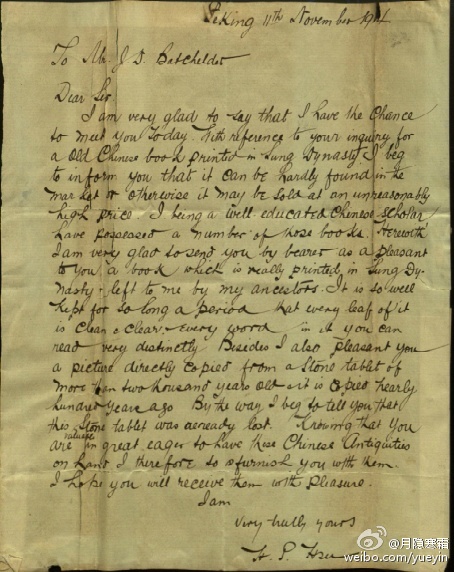 Peking 11th November 1914
To Mr. J. D. Batchelder
Dear Sir
I am very glad to say that I have the Chance
to meet you today. With reference to your inquiry for
a Old Chinese book printed in Sung Dynasty, I beg
to inform you that it can be hardly found in the
market or otherwise it may be sold at an unreasonably
high price. I being a well educated Chinese scholar
have possessed a number of those books. Herewith
I am very glad to send you by bearer as a pleasant
to you a book which is really printed in Sung Dy-
nasty - left to me by my ancestors. It is so well
kept for so long a period that every leaf of it
is Clean & Clear, every word in it you can
read very distinctly Besides I also pleasant you
a picture directly copied from a Stone tablet of
more than two thousand years old & it is copied nearly
hundred years ago By the way I beg to tell you that
this Stone tablet was already lost. Knowing that you
are in great eager to have these Chinese Antiquities
valuable
on hand I therefore so furnish you with them.
I hope you will receive them with pleasure.
I am
Very truly yours
H. P. Hsu
@月隐寒霜
weibo.com/yueyin